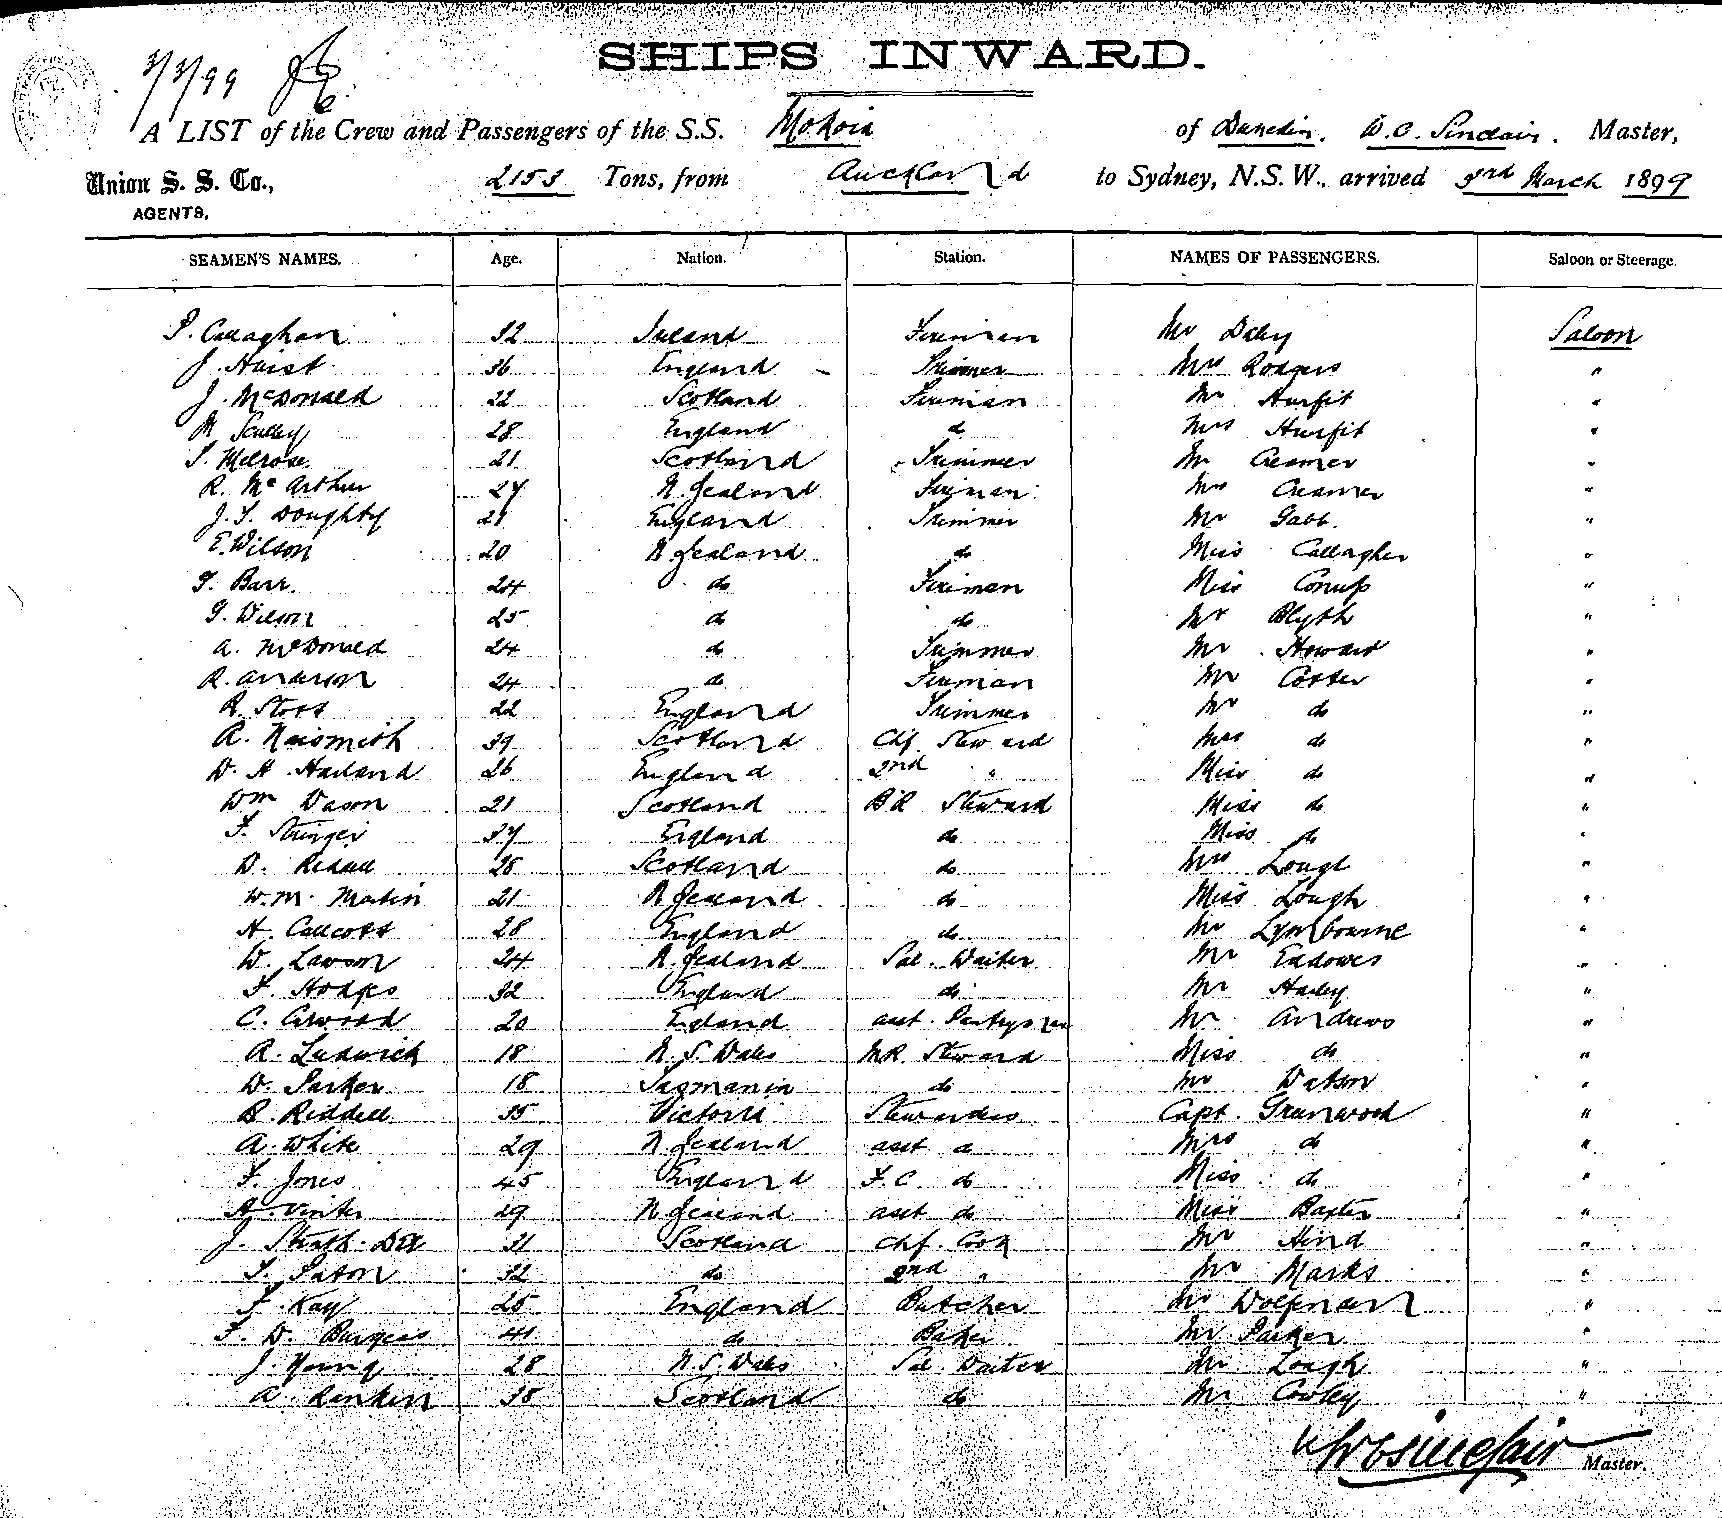 3/3/99
SHIPS INWARD.
A LIST of the Crew and Passengers of the S.S. Mokoia of Dunedin, W.C. Sinclair. Master,
Union S. S. Co., 2153 Tons, from Auckland to Sydney, N.S.W., arrived 3rd March 1899
AGENTS,
SEAMEN'S NAMES. Age. Nation. Station. NAMES OF PASSENGERS. Saloon or Steerage.
Callaghan 32 Ireland Fireman Mr Daley Saloon
J. Hurst 36 England Trimmer Mrs Rodgers "
J. McDonald 22 Scotland Fireman Mr Hurfit "
M Sculley 28 England do Mrs Hurfit "
Melrose 21 Scotland Trimmer Mr Creamer "
R. McArthur 27 N. Zealand Fireman Mrs Creamer "
J.T. Doughty 21 England Trimmer Mr Gabb. "
E. Wilson 20 N Zealand do Miss Callagher "
Barr. 24 do Fireman Miss "
G. Wilson 25 do do Mr Blyth "
A. McDonald 24 do Trimmer Mr Howard "
R. Anderson 24 do Fireman Mr Cotter "
R. Stott 22 England Trimmer Mr do "
A. Naismith 39 Scotland Chf. Steward Mrs do "
W. H. Harland 26 England 2nd " Miss do "
Wm Wason 21 Scotland BR Steward Miss do "
F. Stringer 37 England do Miss do "
Scotland do Mrs Lough "
W.M. Martin 21 N Zealand do Miss Lough "
H. Callcott 28 England do Mr Lymbourne "
W. Lawson 24 N. Zealand Sal. Waiter Mr Eddowes "
F. Hodges 32 England do Mr "
C. Atwood 20 England asst. Pantryman Mr Andrews "
R. Ludwick 18 N. S. Wales MR. Steward Miss do "
W. Parker 18 Tasmania do Mr Watson "
B. Riddell 35 Victoria Stewardess Capt. Greenwood "
A. White 29 N Zealand asst do Mrs do "
F. Jones 45 England F.C. do Miss do "
Winter 29 N Zealand asst do Miss Baxter "
J. 31 Scotland Chf. Cook Mr Hind "
Paton 32 do 2nd " Mr Marks "
F. Kay 25 England Butcher Mr Wolfman "
F. W. Burgess 41 do Baker Mr Parker "
J. Young 28 N.S. Wales Sal. Waiter Mr Lough "
A. Rankin 38 Scotland do Mr Cooley "
W C Sinclair Master.